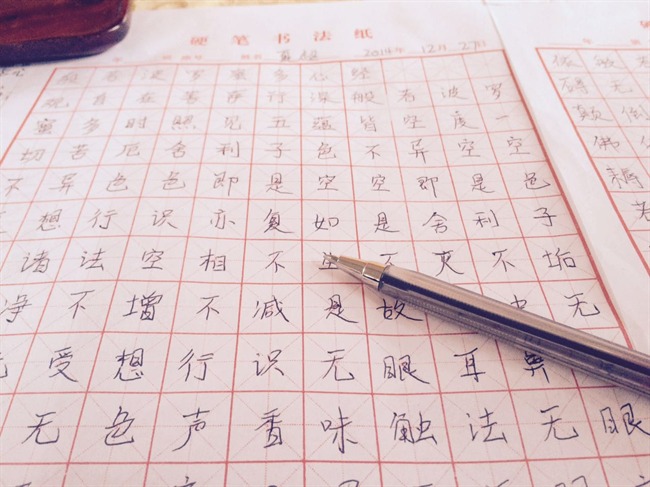 硬笔书法纸
2014年12月27日
般若波罗蜜多心经
观自在菩萨行深般若波罗
蜜多时照见五蕴皆空度一
切苦厄舍利子色不异空空
不异色色即是空空即是色
想行识亦复如是舍利子
诸法空相不生不灭不垢
净不增不减是故中无
受想行识无眼耳鼻
无色声香味触法无眼
依般
碍无
颠倒
佛
耨
若